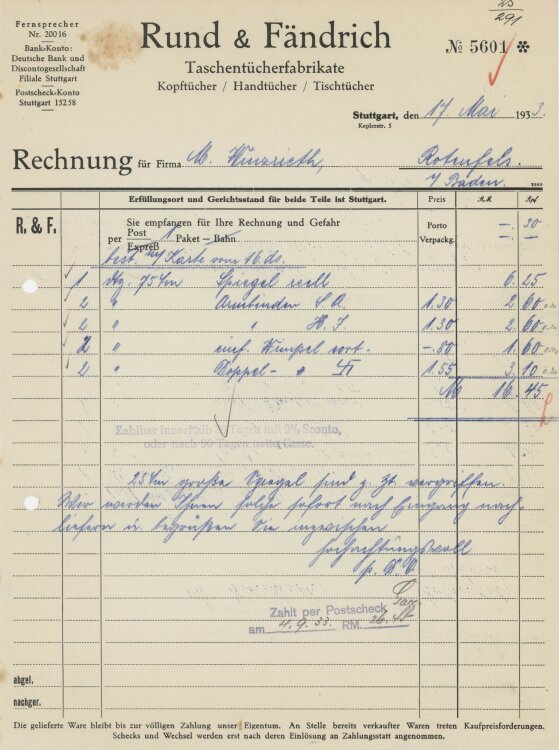 23
291
Fernsprecher
Nr. 20016
Bank-Konto:
Deutsche Bank und
Discontogesellschaft
Filiale Stuttgart
Postscheck-Konto
Stuttgart 15258
Rund & Fändrich
Taschentücherfabrikate
Kopftücher / Handtücher / Tischtücher
№ 5601 *
Stuttgart, den 17 Mai 1933.
Keplerstr. 5
Rechnung für Firma M. Winzrieth, Rotenfels.
i/ Baden.
Erfüllungsort und Gerichtsstand für beide Teile ist Stuttgart. Preis R.M. Rpf
R. & F. Sie empfangen für Ihre Rechnung und Gefahr Porto —. 30
per Post Expreß 1 Paket – Bahn Verpackg. —. —
best. m/ Karte vom 16 ds.
1 Dtz. 75 cm Spiegel reell 6. 25
2 " Armbinden S.A. 1.30 2. 60
2 " " H.J. 1.30 2. 60
2 " einf. Wimpel sort. –.80 1. 60
2 " Doppel- " 卐 1.55 3. 10
M 16. 45
Zahlbar innerhalb Tagen mit 2% Sconto,
oder nach 60 Tagen netto Casse.
25 cm große Spiegel sind z. Zt. vergriffen.
Wir werden Ihnen solche sofort nach Eingang nach-
liefern u. begrüßen Sie inzwischen
hochachtungsvoll
Zahlt per Postscheck
am 4.9.33. RM. 26.45
abgel.
nachger.
Die gelieferte Ware bleibt bis zur völligen Zahlung unser Eigentum. An Stelle bereits verkaufter Waren treten Kaufpreisforderungen.
Schecks und Wechsel werden erst nach deren Einlösung an Zahlungsstatt angenommen.